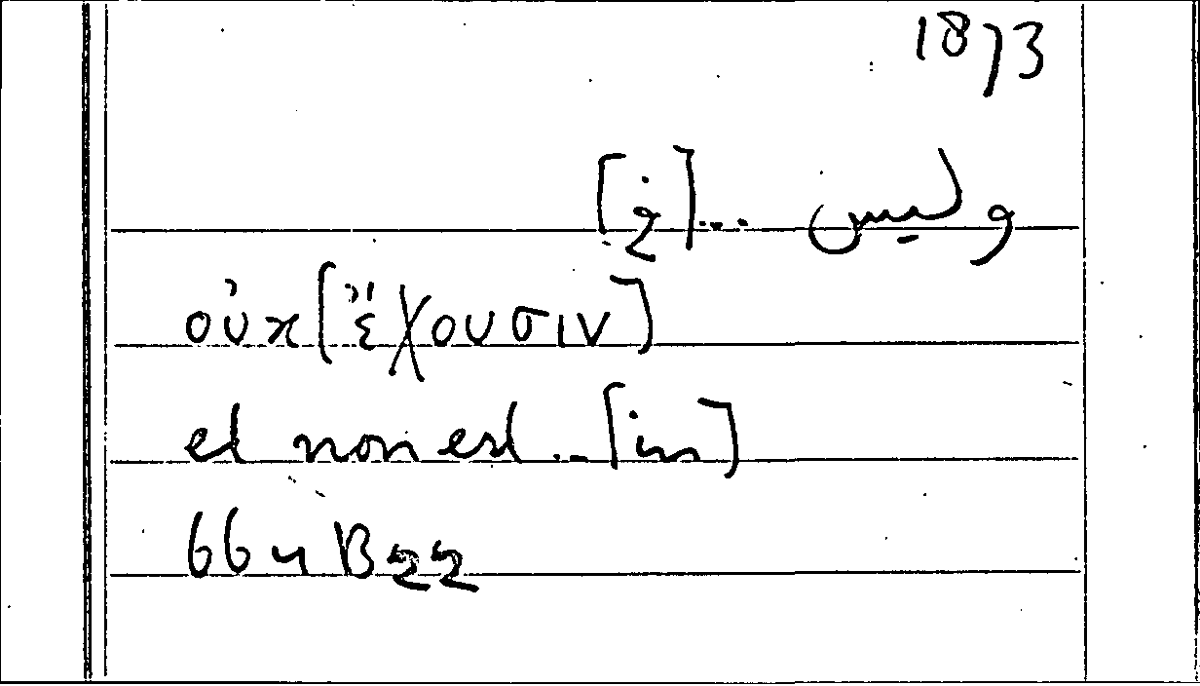 1873
وليس ... [في]
οὐχ [ἔχουσιν]
et non est ... [in]
664 B 22